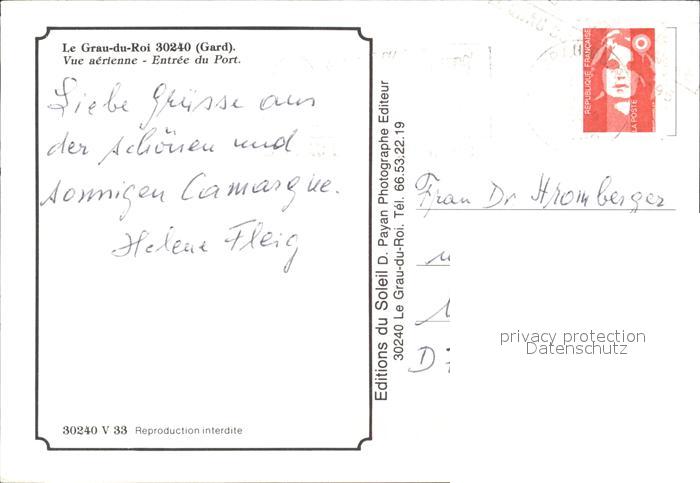 Le Grau-du-Roi 30240 (Gard).
Vue aérienne - Entrée du Port.
Liebe Grüsse aus
der schönen und
sonnigen Camargue.
Helene Fleig
30240 V 33 Reproduction interdite
Editions du Soleil D. Payan Photographe Editeur
30240 Le Grau-du-Roi. Tél. 66.53.22.19
REPUBLIQUE FRANÇAISE
LA POSTE
Frau Dr Hromberger
D
privacy protection
Datenschutz